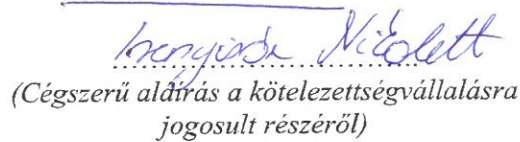 Nikolett
(Cégszerű aláírás a kötelezettségvállalásra
jogosult részéről)